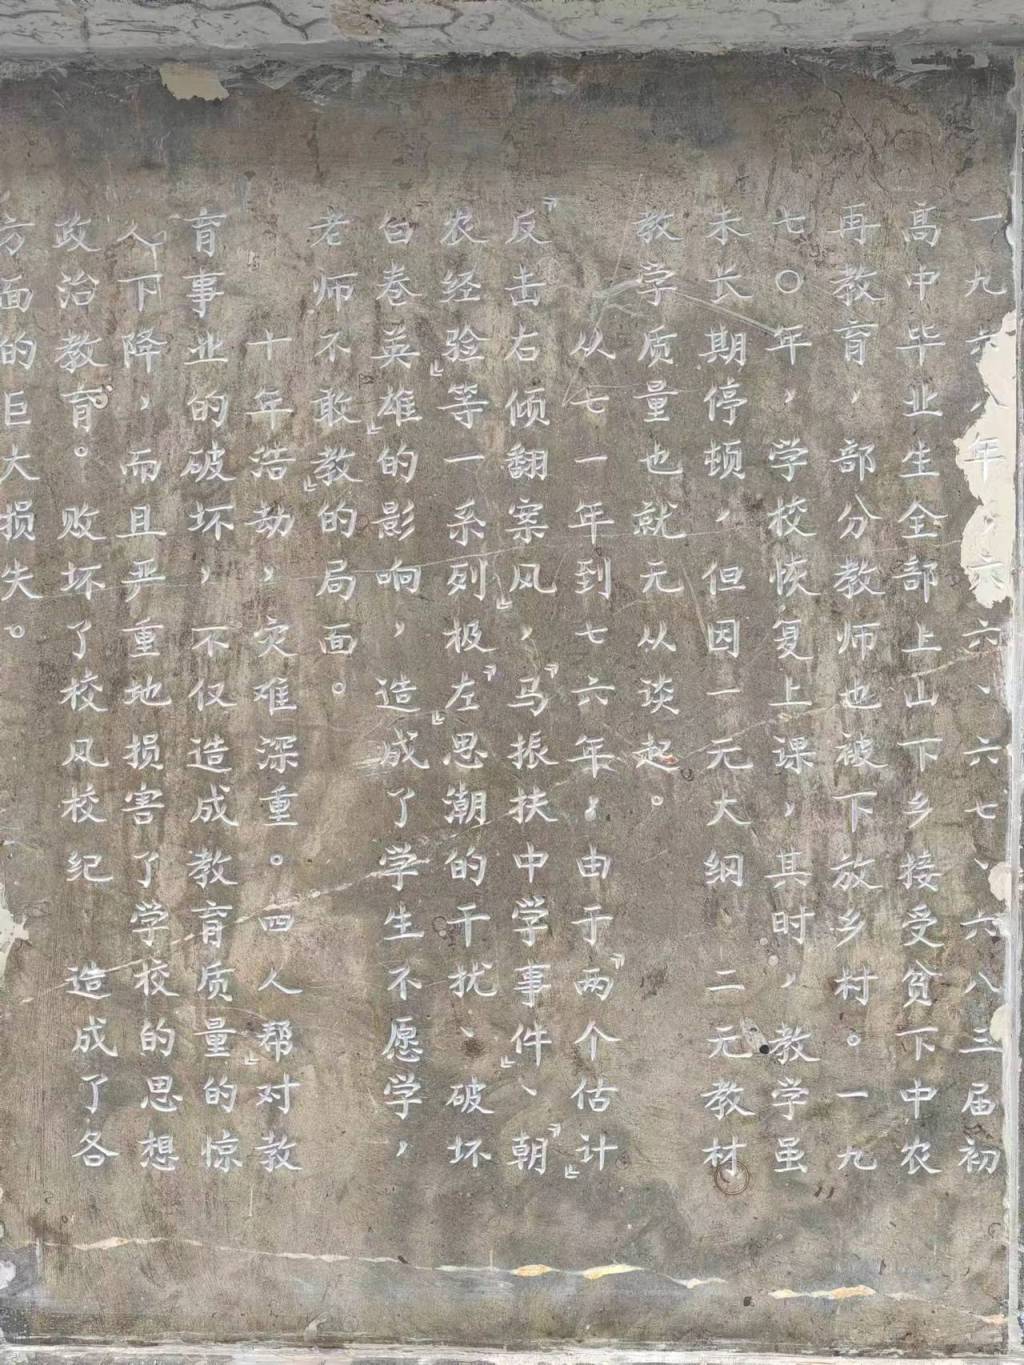 一九六八年，六六、六七、六八三届初
高中毕业生全部上山下乡接受贫下中农
再教育，部分教师也被下放乡村。一九
七〇年，学校恢复上课，其时，教学虽
未长期停顿，但因一元大纲 二元教材
教学质量也就无从谈起。
从七一年到七六年，由于『两个估计』
『反击右倾翻案风』，『马振扶中学事件』、『朝
农经验』等一系列极『左』思潮的干扰、破坏
白卷英雄』的影响，造成了学生不愿学，
老师不敢教』的局面。
十年浩劫，灾难深重。四人帮』对教
育事业的破坏，不仅造成教育质量的惊
人下降，而且严重地损害了学校的思想
政治教育。败坏了校风校纪 造成了各
方面的巨大损失。